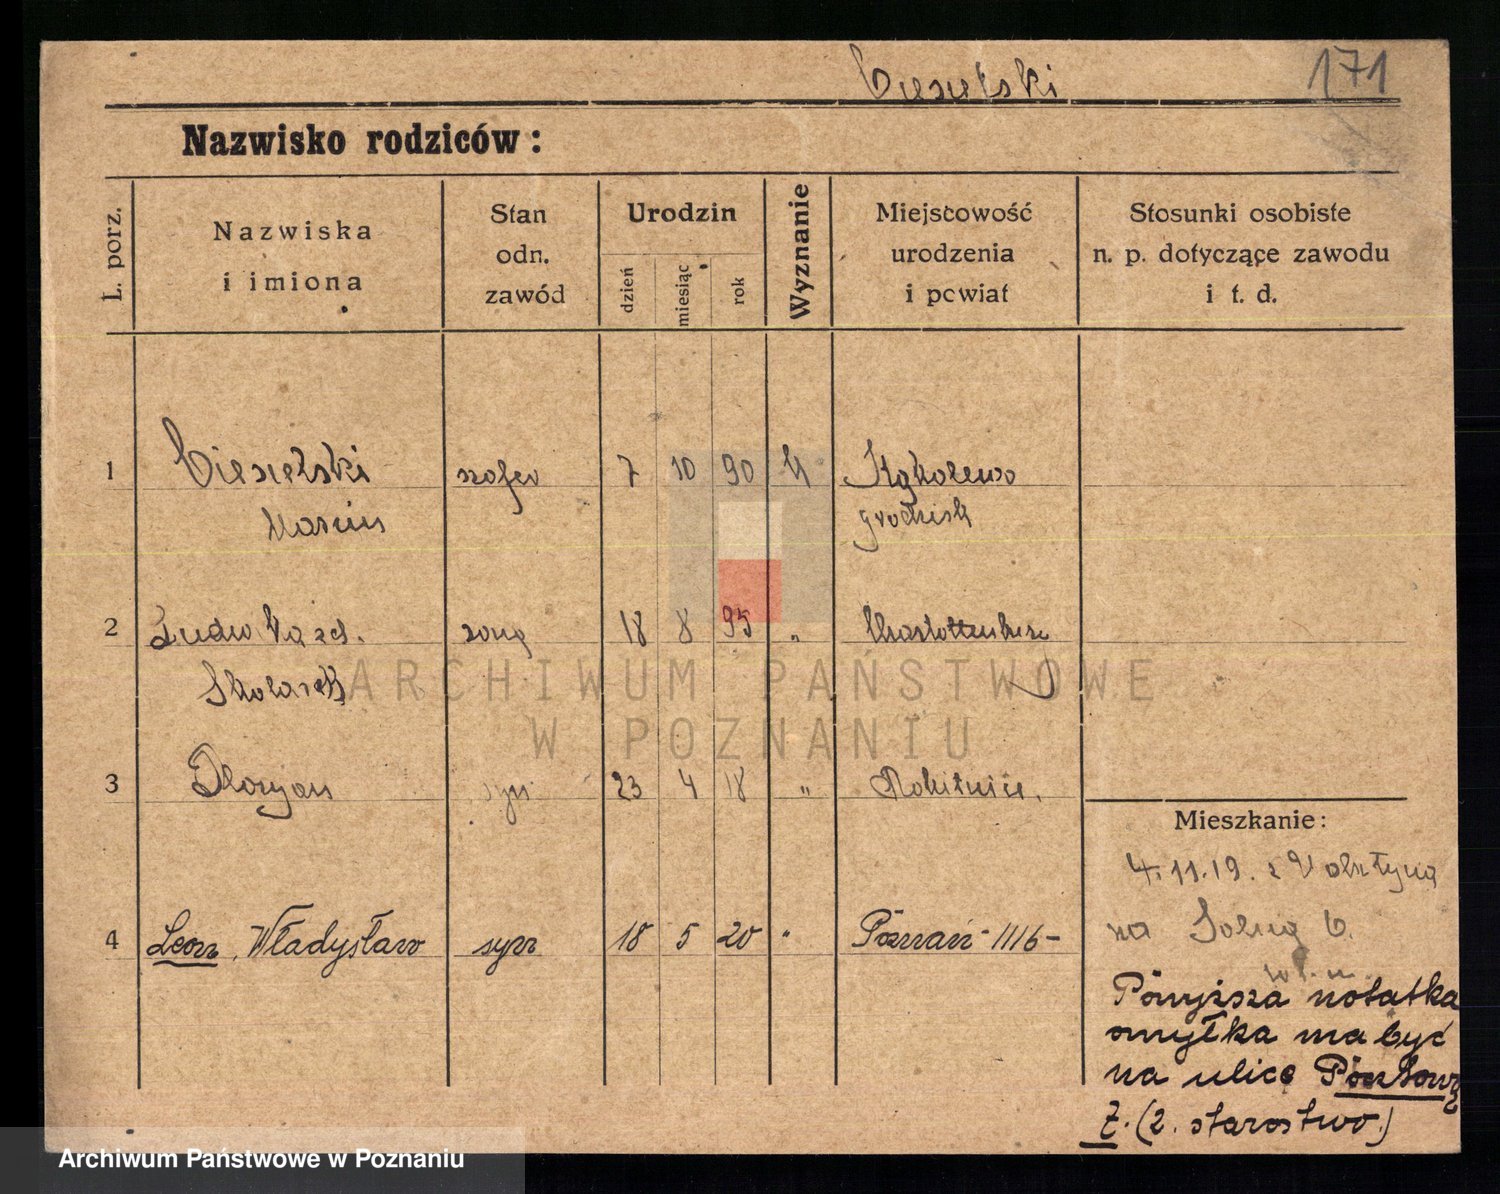 Ciesielski
171
Nazwisko rodziców:
L. porz.
Nazwiska
i imiona
Stan
odn.
zawód
Urodzin
dzień
miesiąc
rok
Wyznanie
Miejscowość
urodzenia
i powiat
Stosunki osobiste
n. p. dotyczące zawodu
i t. d.
1 Ciesielski szofer 7 10 90 Kąkolewo
Marcin grodzisk
2 zona 18 8 95 " Charlottenburg
Skolarek
3 Floryan syn 23 4 18 " Rokitnice.
4 Leon, Władysław syn 18 5 20 " Poznań 1116-
Mieszkanie:
4.11.19. z Wolsztyna
na Solną 6.
Powyższa notatka
omyłka ma być
na ulice Pocztową
7. (2. starostwo.)
ARCHIWUM PAŃSTWOWE
W POZNANIU
Archiwum Państwowe w Poznaniu